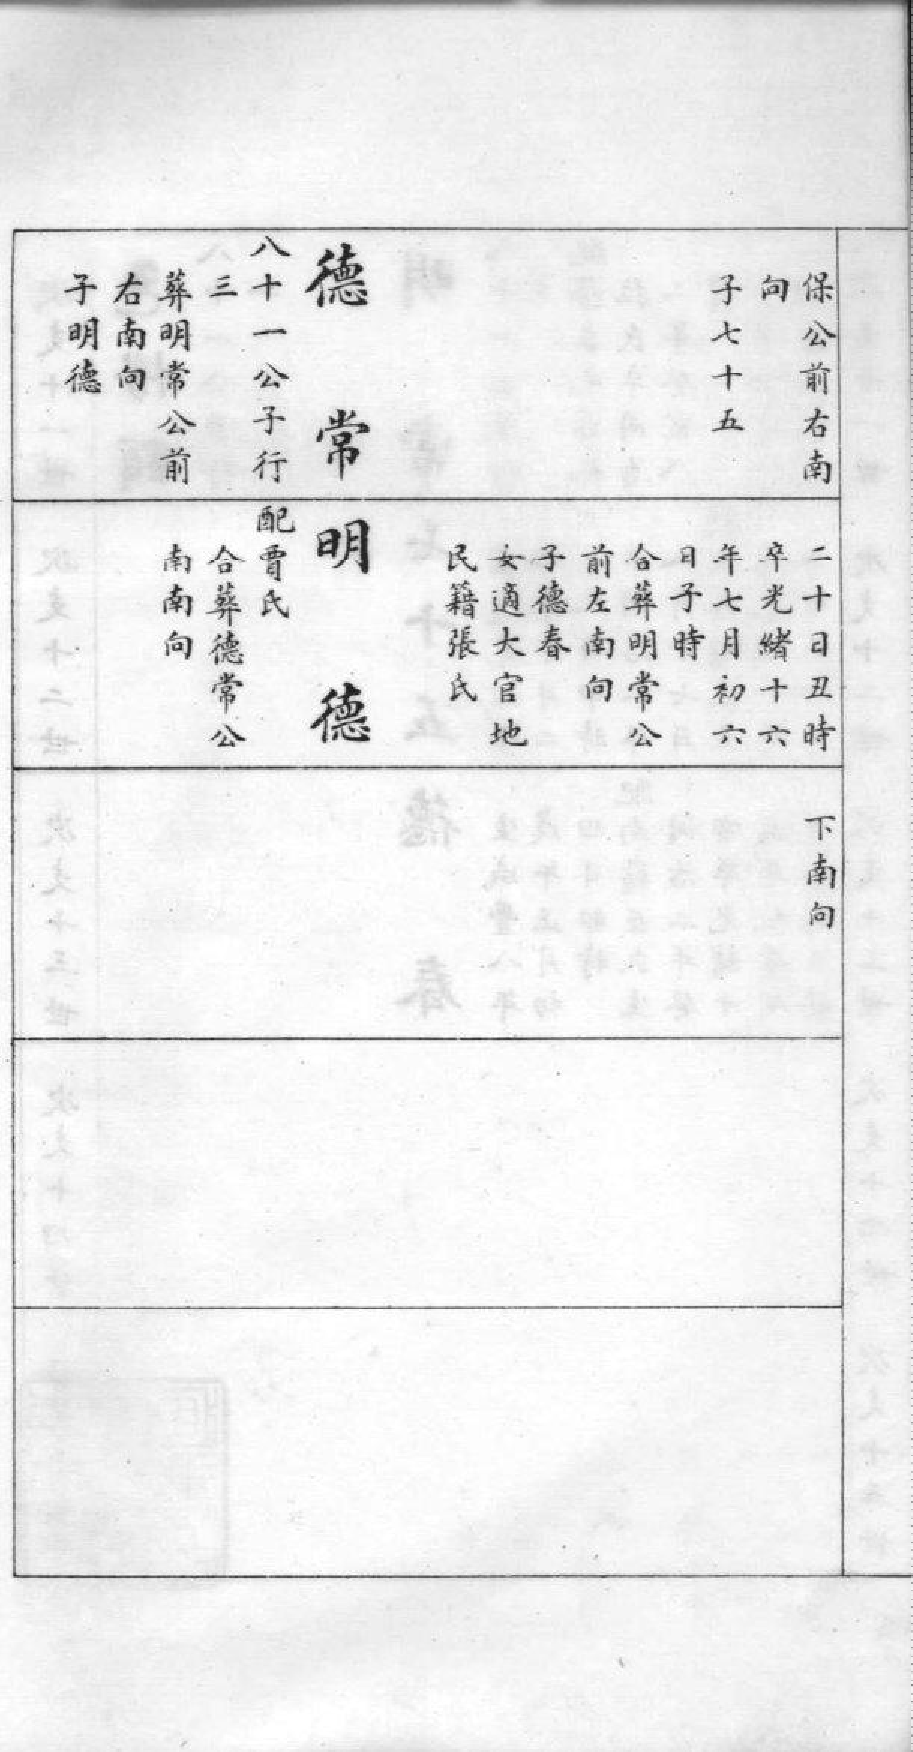 保公前右南
向
子七十五
德常
八十一公子行
三
葬明常公前
右南向
子明德
二十日丑時
卒光緒十六
年七月初六
日子時
合葬明常公
前左南向
子德春
女適大官地
民籍張氏
明德
配賈氏
合葬德常公
南南向
下南向